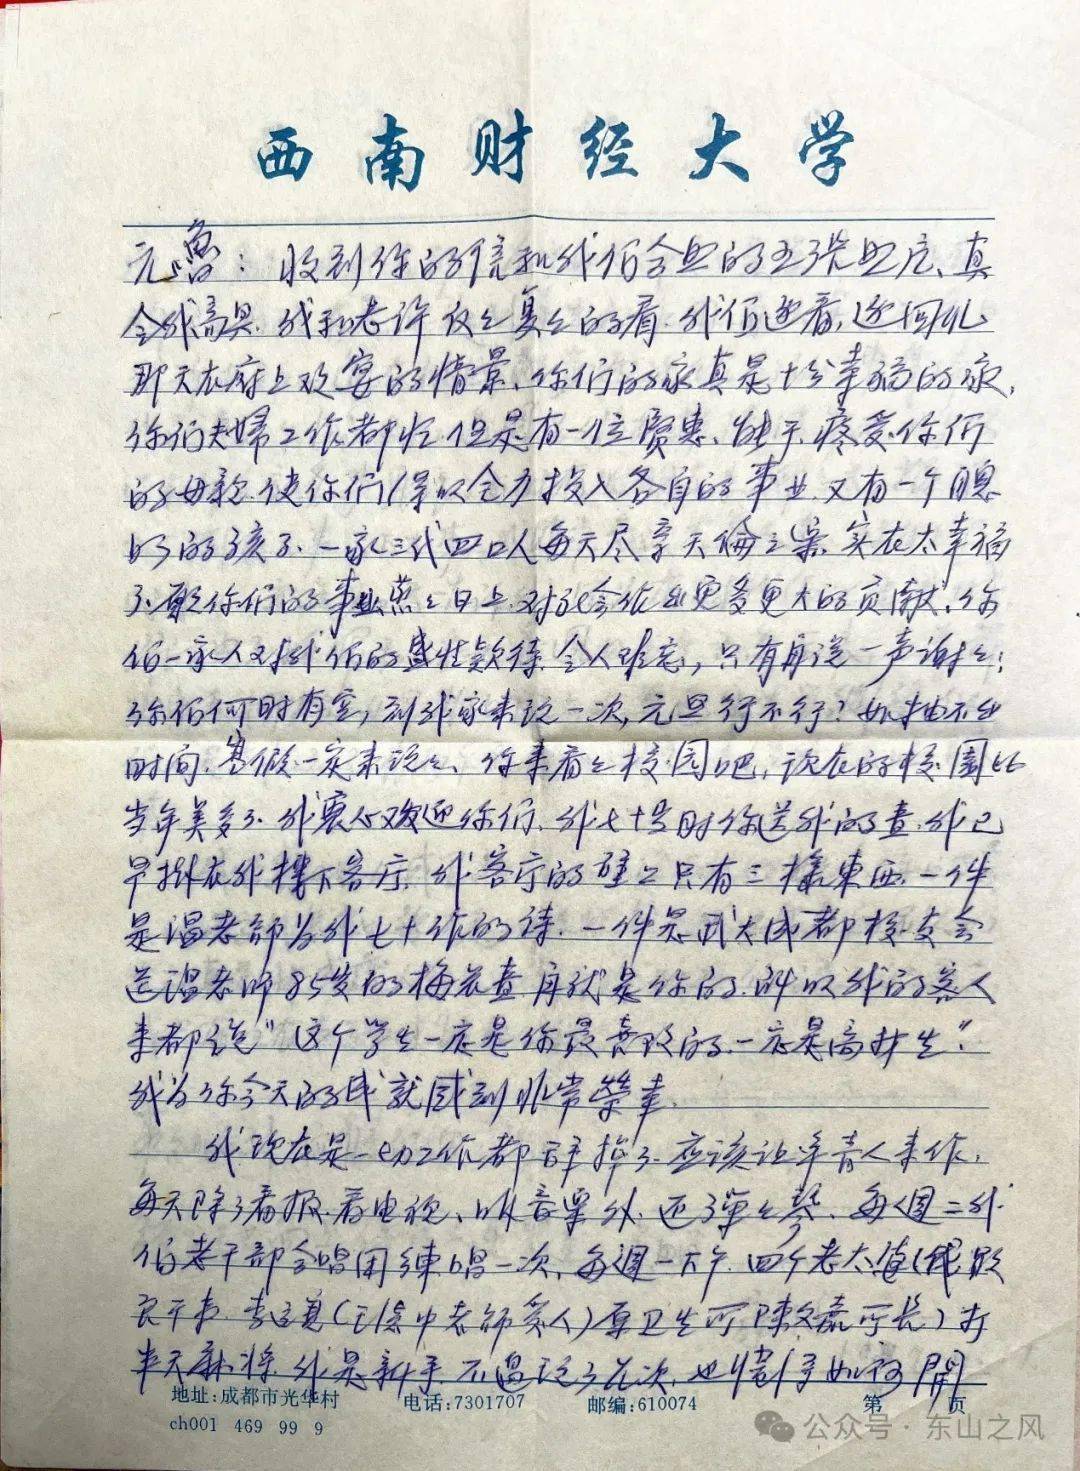 西南财经大学
元鲁：收到你的信和我们合照的五张照片、真
令我高兴.我和老许反之复之的看.我们边看,边回忆
那天在府上欢宴的情景、你们的家真是十分幸福的家.
你们夫婦工作都忙.但是有一位贤惠、能干.疼爱你们
的母亲.使你们得以全力投入各自的事业.又有一个聪
明的孩子.一家三代四口人每天尽享天倫之楽.实在太幸福
了.願你们的事业蒸之日上.对社会作出更多更大的贡献.你
们一家人对我们的盛情款待.令人难忘，只有再说一声谢之；
你们何时有空，到我家来玩一次,元旦行不行？如抽不出
时间.寒假一定来玩之、你来看之校园吧，现在的校園比
当年美多了.我衷心欢迎你们.我七十岁时你送我的畫.我已
早掛在我樓下客厅.我客厅的壁上只有三樣東西.一件
是温老师为我七十作的诗.一件是武大成都校友会
送温老师85岁的梅花畫.再就是你的.所以我的客人
来都说"这个学生一定是你最喜欢的.一定是高材生."
我为你今天的成就感到非常榮幸.
我现在是一切工作都辞掉了.应该让年青人来作.
每天除了看报.看电视、听音楽外.还了彈之琴、每週二我
们老干部合唱团練唱一次、每週一下午.四个老太
（王 中老师爱人）原卫生厅 陳文 厅长）打
半天麻将.我是新手.不過玩了几次.也懂得如何開
地址:成都市光华村 电话:7301707 邮编:610074 第 页
ch001 469 99 9
公众号·东山之风